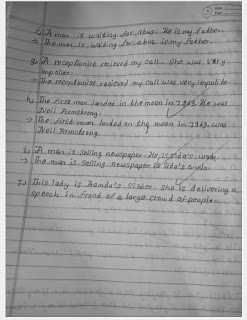 f) A man is waiting for a bus. He is my father.
→ The man is waiting for a bus is my father.
g) A receptionist recieved my call. She was very
impolite.
→ The receptionist recieved my call was very impolite.
h) The first man landed in the moon in 1969. He was
Neil Armstrong.
→ The first man landed on the moon in 1969 was
Neil Armstrong.
i) A man is selling newspaper. He is Sita's uncle.
→ The man is selling newspaper is Sita's uncle.
J) This lady is Nanda's sister. She is delivering a
speech in front of a large crowd of people.